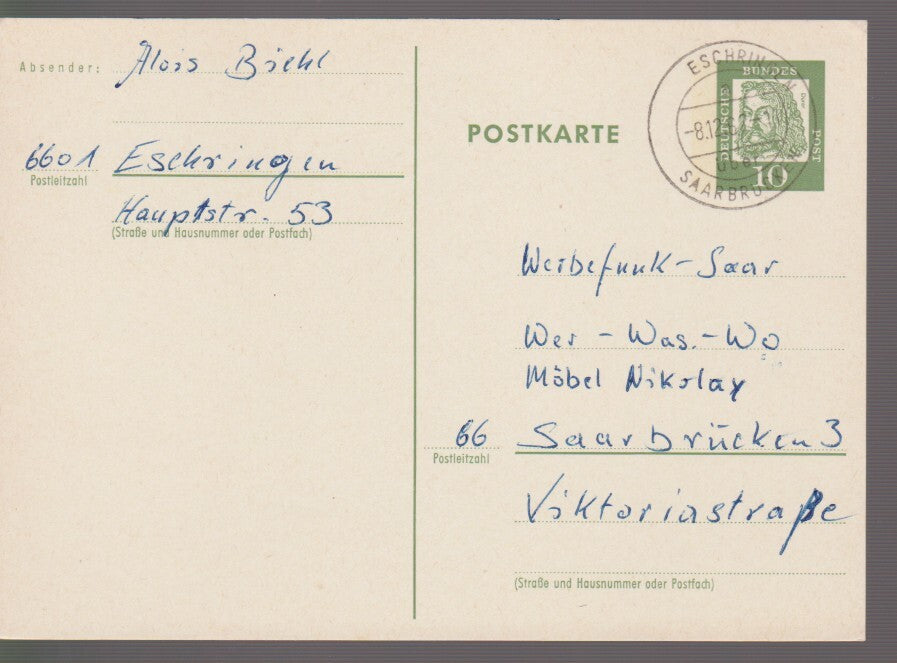 Absender: Alois Biehl
6601 Eschringen
Postleitzahl
Hauptstr. 53
(Straße und Hausnummer oder Postfach)
POSTKARTE
ESCHRINGEN
-8.12.62
SAARBRÜCKEN
DEUTSCHE BUNDES POST
Dürer
10
Werbefunk-Saar
Wer - Was.- Wo
Möbel Nikolay
66 Saarbrücken 3
Postleitzahl
Viktoriastraße
(Straße und Hausnummer oder Postfach)